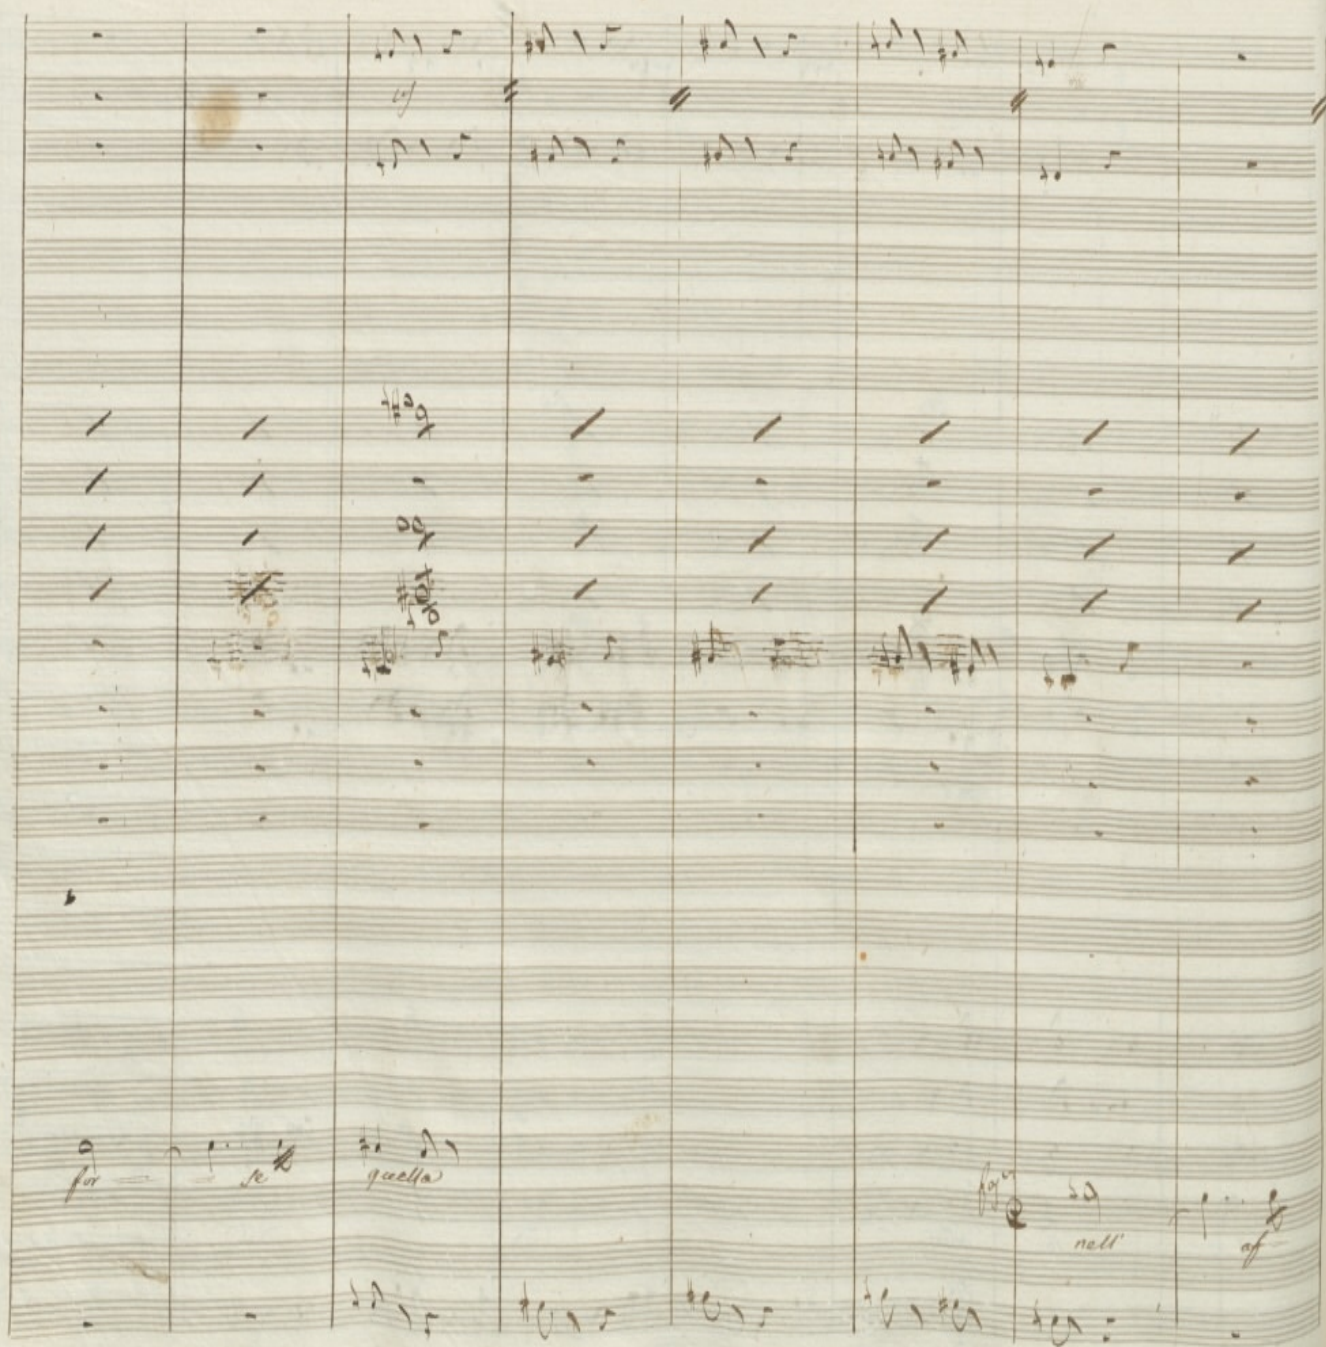 for se quella
nell' af